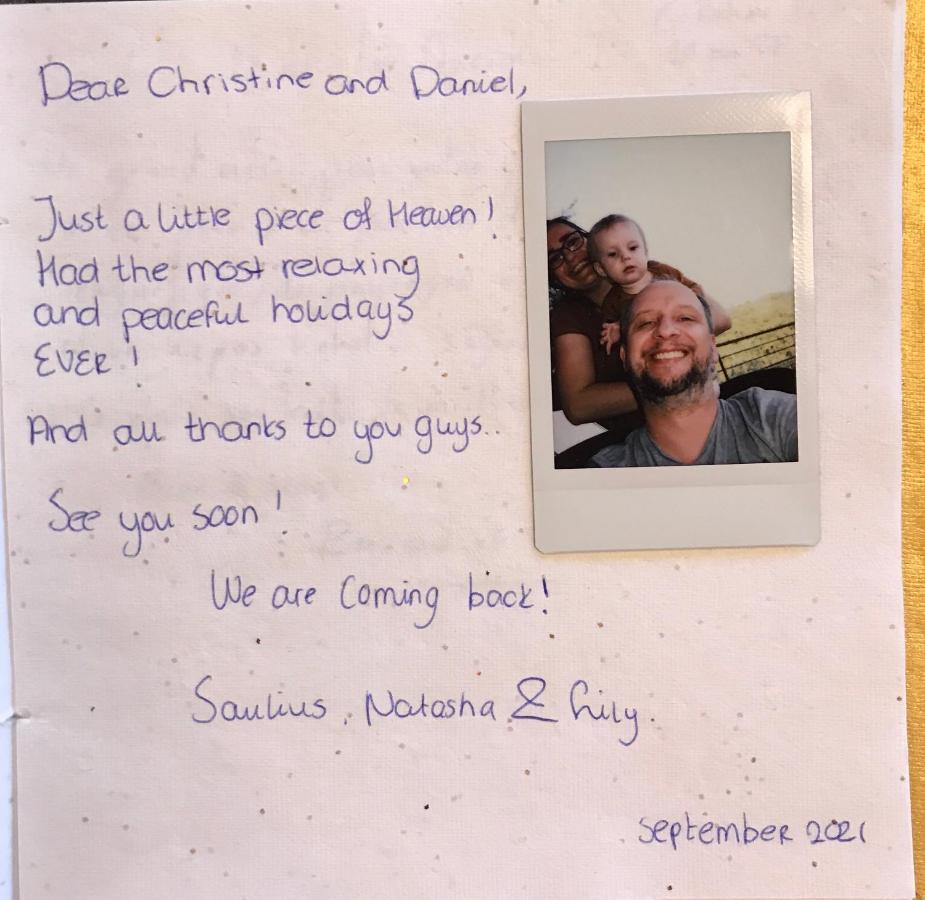 Dear Christine and Daniel,
Just a little piece of Heaven!
Had the most relaxing
and peaceful holidays
EVER!
And all thanks to you guys..
See you soon!
We are Coming back!
Saulius, Natasha & Lily.
September 2021